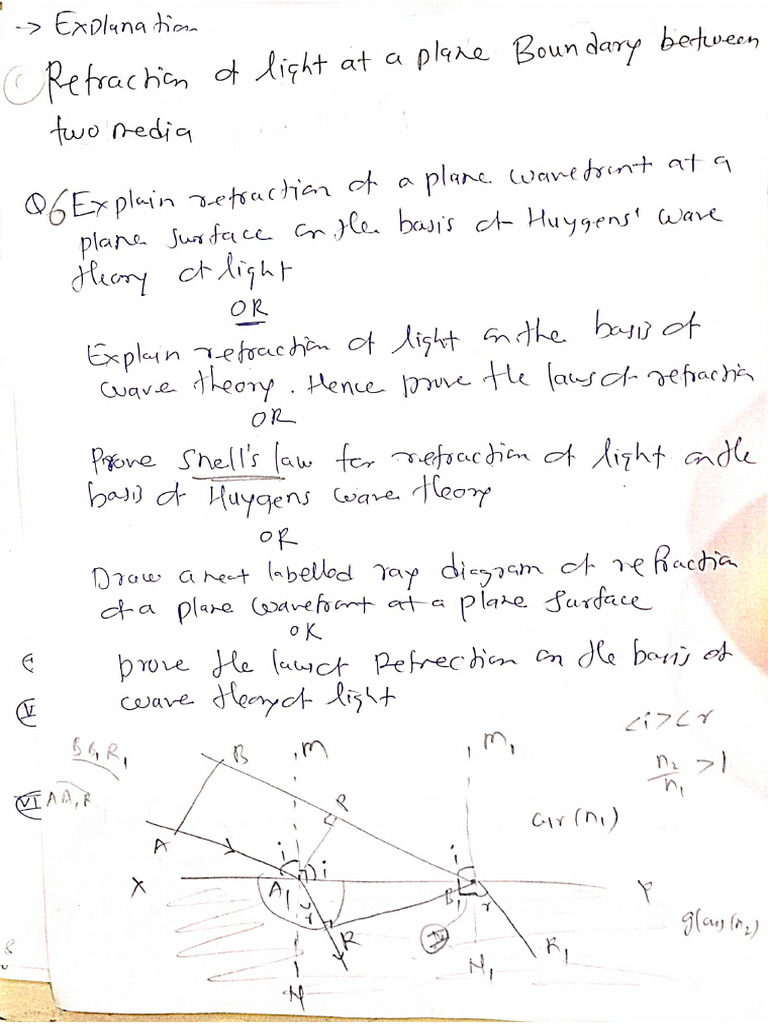 -> Explanation
Refraction of light at a plane Boundary between
two media
Q6 Explain refraction of a plane wavefront at a
plane surface on the basis of Huygens' wave
theory of light
OR
Explain refraction of light on the basis of
wave theory. Hence prove the laws of refraction
OR
Prove Snell's law for refraction of light on the
basis of Huygens wave theory
OR
Draw a neat labelled ray diagram of refraction
of a plane wavefront at a plane surface
OR
prove the laws of Refrection on the basis of
V wave theory of light
<i><r
BB1R1 B M M1
n2/n1 >1
VI AA1R R air (n1)
A i i
X A1 i B1 Y
r r glass (n2)
R IV R1
N N1